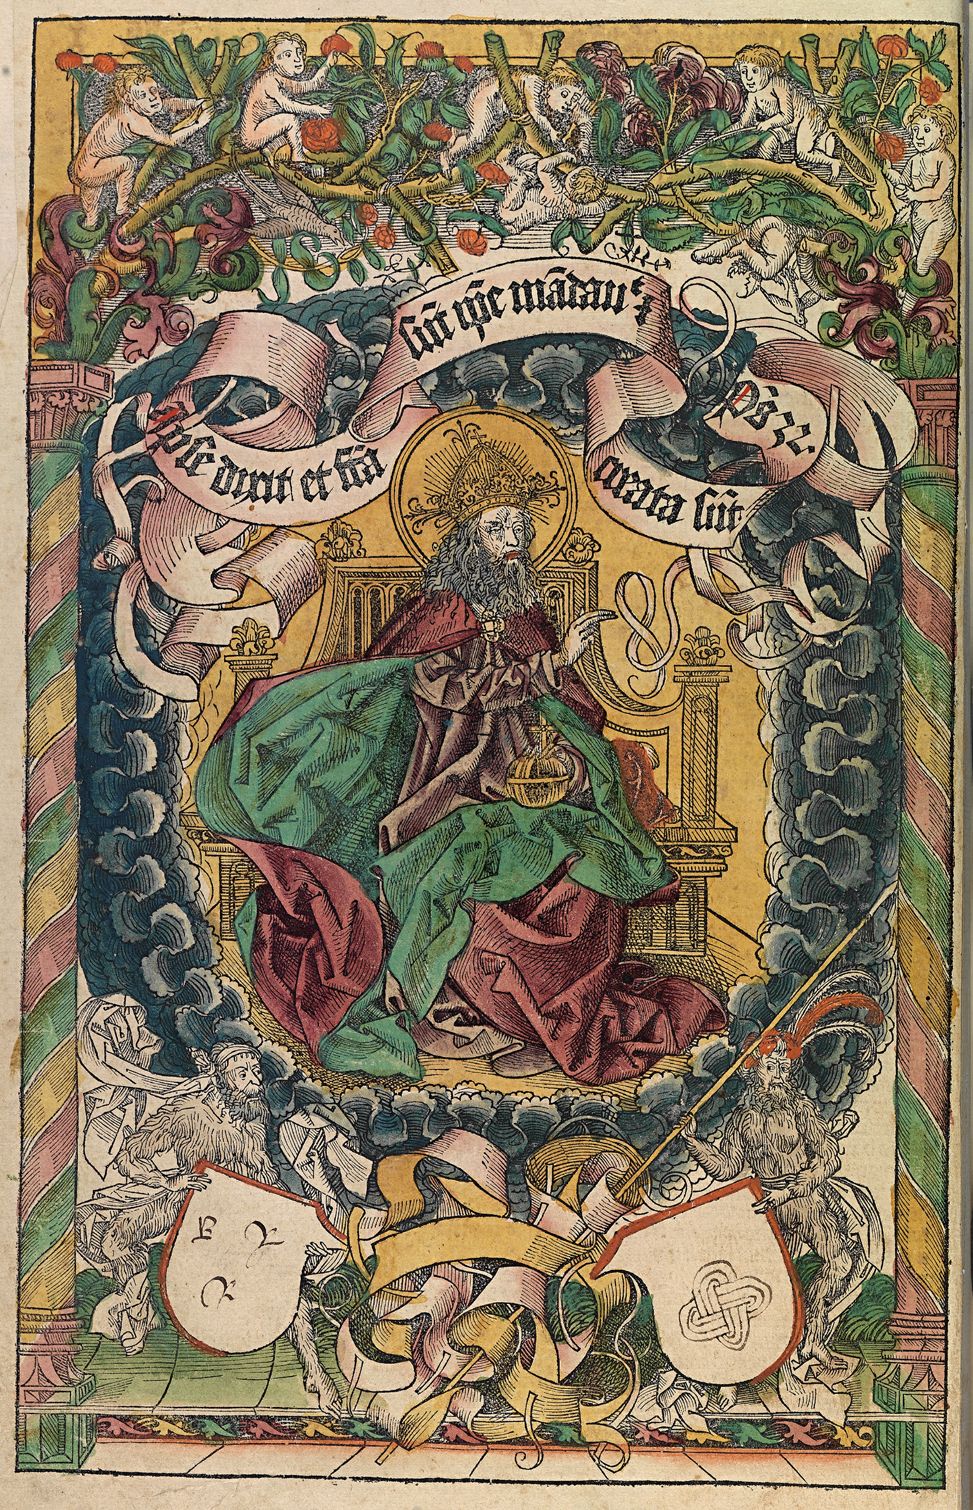 Ipse dixit et fc̄a
sūt ip̄e mādauͭ ⁊
creata sūt
p̄s 32